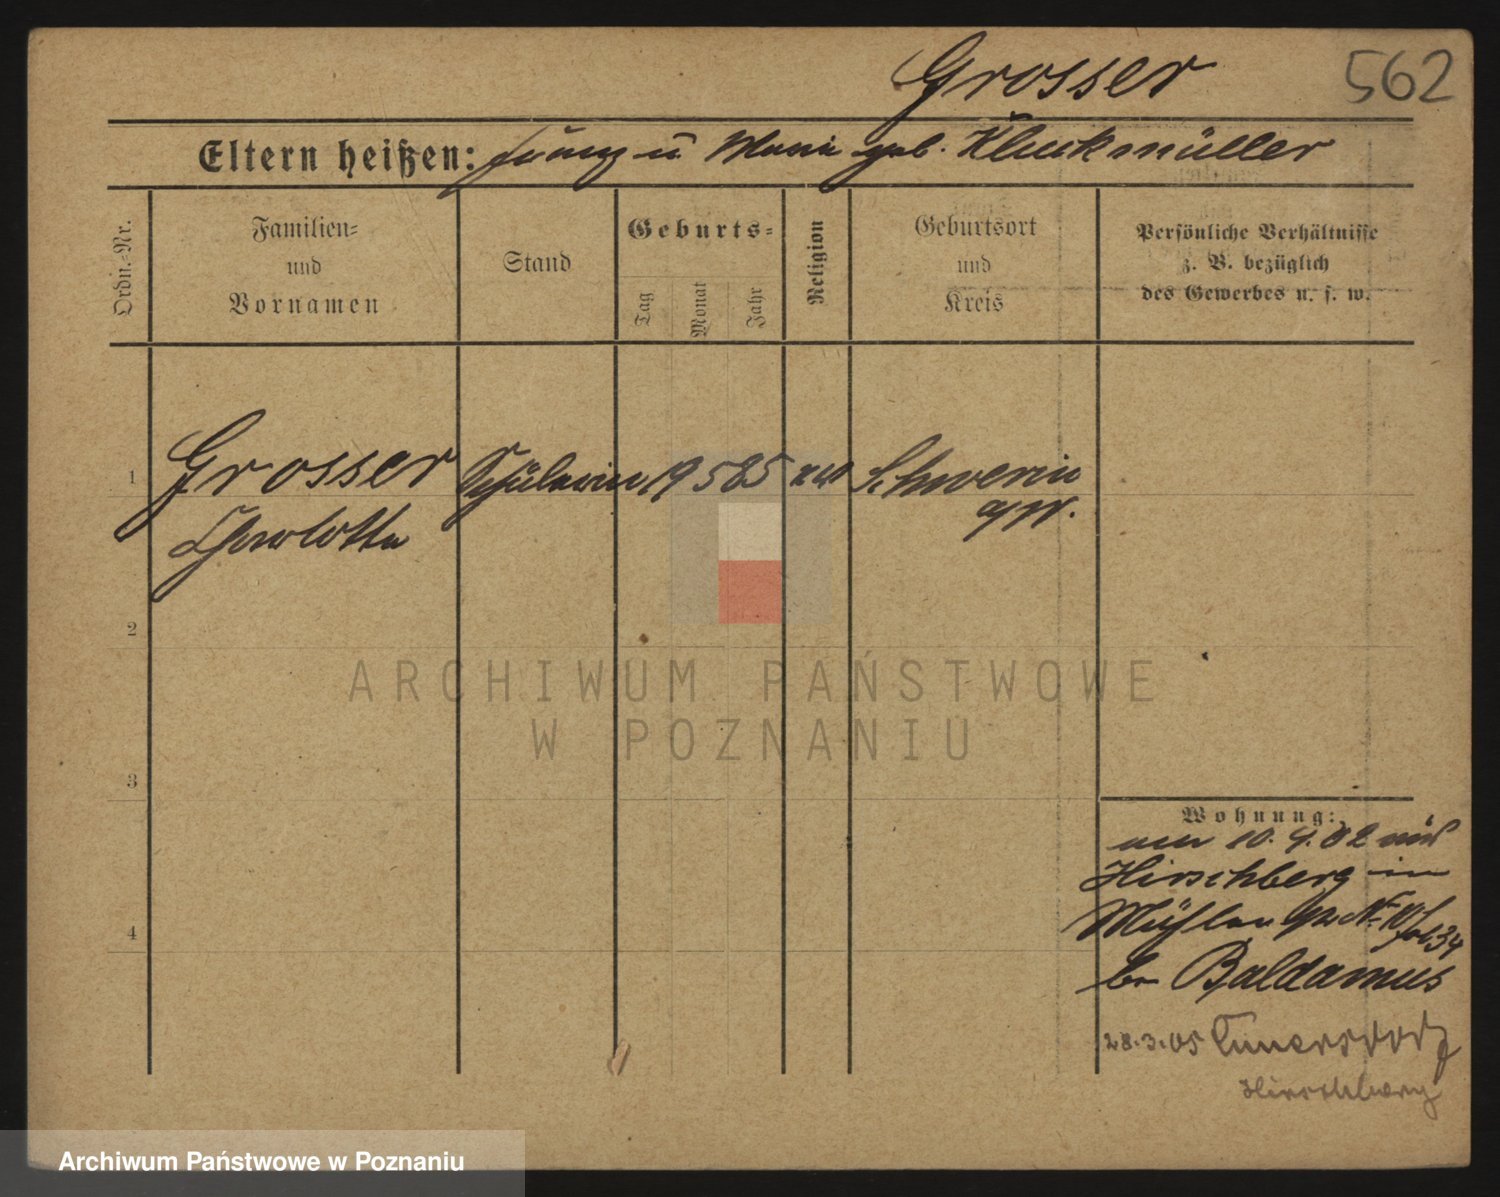 Grosser
562
Eltern heißen: Franz u. Maria geb. Kluckmüller
Ordn.-Nr.
Familien-
und
Vornamen
Stand
Geburts-
Tag
Monat
Jahr
Religion
Geburtsort
und
Kreis
Persönliche Verhältnisse
z. B. bezüglich
des Gewerbes u. s. w.
1
Grosser
Charlotte
Schülerin
19 5 85
Schwerin
a/W.
2
3
4
ARCHIWUM PAŃSTWOWE
W POZNANIU
Wohnung:
10. 4. 02
Hirschberg in
Mühlen
Baldamus
28.3.05 Cunersdorf
Hirschberg
Archiwum Państwowe w Poznaniu